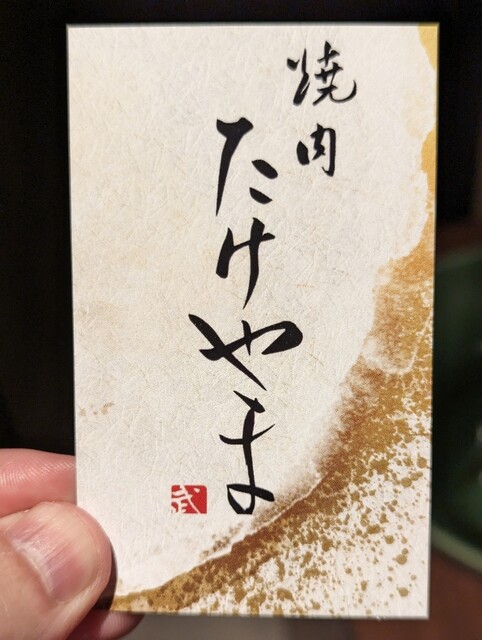 焼肉
たけやま
武